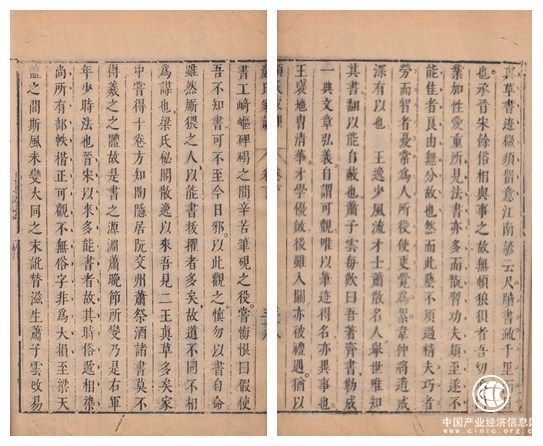 真草書迹微須留意江南諺云尺牘書疏千里
也承晉宋餘俗相與事之故無頓狼狽者吾幼
業加性愛重所見法書亦多而翫習功夫頗至遂不
能佳者良由無分故也然而此藝不須過精夫巧者
勞而智者憂常爲人所役使更覺爲累韋仲將遺戒
深有以也 王逸少風流才士蕭散名人舉世惟知
其書翻以能自蔽也蕭子雲每歎曰吾著齊書勒成
一典文章弘義自謂可觀唯以筆迹得名亦異事也
王褒地胄清華才學優敏後雖入關亦被禮遇猶以
顏氏家訓 卷下
書工崎嶇碑碣之間辛苦筆硯之役嘗悔恨曰假使
吾不知書可不至今日邪以此觀之慎勿以書自命
雖然厮猥之人以能書拔擢者多矣故道不同不相
爲謀也梁氏秘閣散逸以來吾見二王真草多矣家
中嘗得十卷方知陶隱居阮交州蕭祭酒諸書莫不
得羲之之體故是書之源淵蕭晚節所變乃是右軍
年少時法也晉宋以來多能書者故其時俗遞相染
尚所有部帙楷正可觀不無俗字非爲大損至梁天
監之間斯風未變大同之末訛替滋生蕭子雲改易
中国产业经济信息网
www.cinic.org.cn